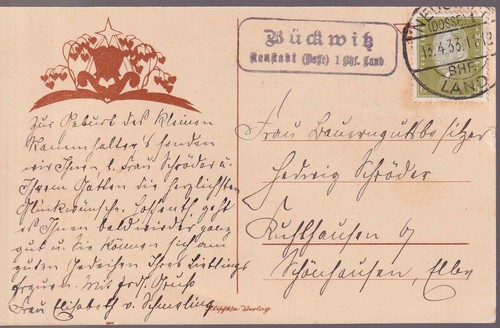 Bückwitz
Neustadt (Dosse) 1 Bhf. Land
NEUSTADT
(DOSSE)
13.4.33.
BHF.
LAND
Zur Geburt des kleinen
Stammhalter's senden
wir Ihnen l. Frau Schröder u.
Ihrem Gatten die herzlichsten
Glückwünsche. Hoffentl. geht
es Ihnen bald wieder ganz
gut u. Sie können sich am
guten Gedeihen Ihres Lieblings
freuen. Mit frdl. Gruß
Frau Elisabeth v. Schmeling
Frau Bauerngutsbesitzer
Hedwig Schröder
Kuhlhausen
Schönhausen, Elbe
Verlag.